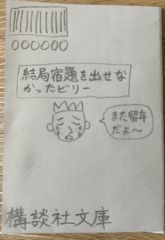 000000
結局宿題を出せな
かったビリー
また留年
だよ～
構談社文庫